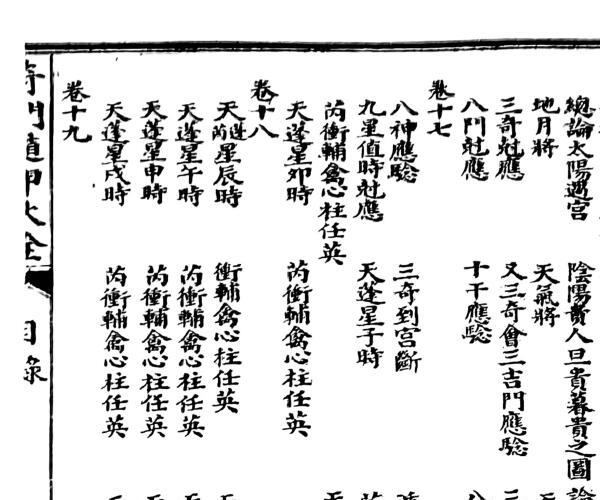 總論太陽躔宮 陰陽貴人旦貴暮貴之圖
地月將 天氣將
三奇尅應 又三奇會三吉門應騐
八門尅應 十干應騐
卷十七
八神應騐 三奇到宮斷
九星值時尅應 天蓬星子時
芮衝輔禽心柱任英
天蓬星卯時 芮衝輔禽心柱任英
卷十八
天蓬芮星辰時 衝輔禽心柱任英
天蓬星午時 芮衝輔禽心柱任英
天蓬星申時 芮衝輔禽心柱任英
天蓬星戌時 芮衝輔禽心柱任英
卷十九
奇門遁甲大全 目錄